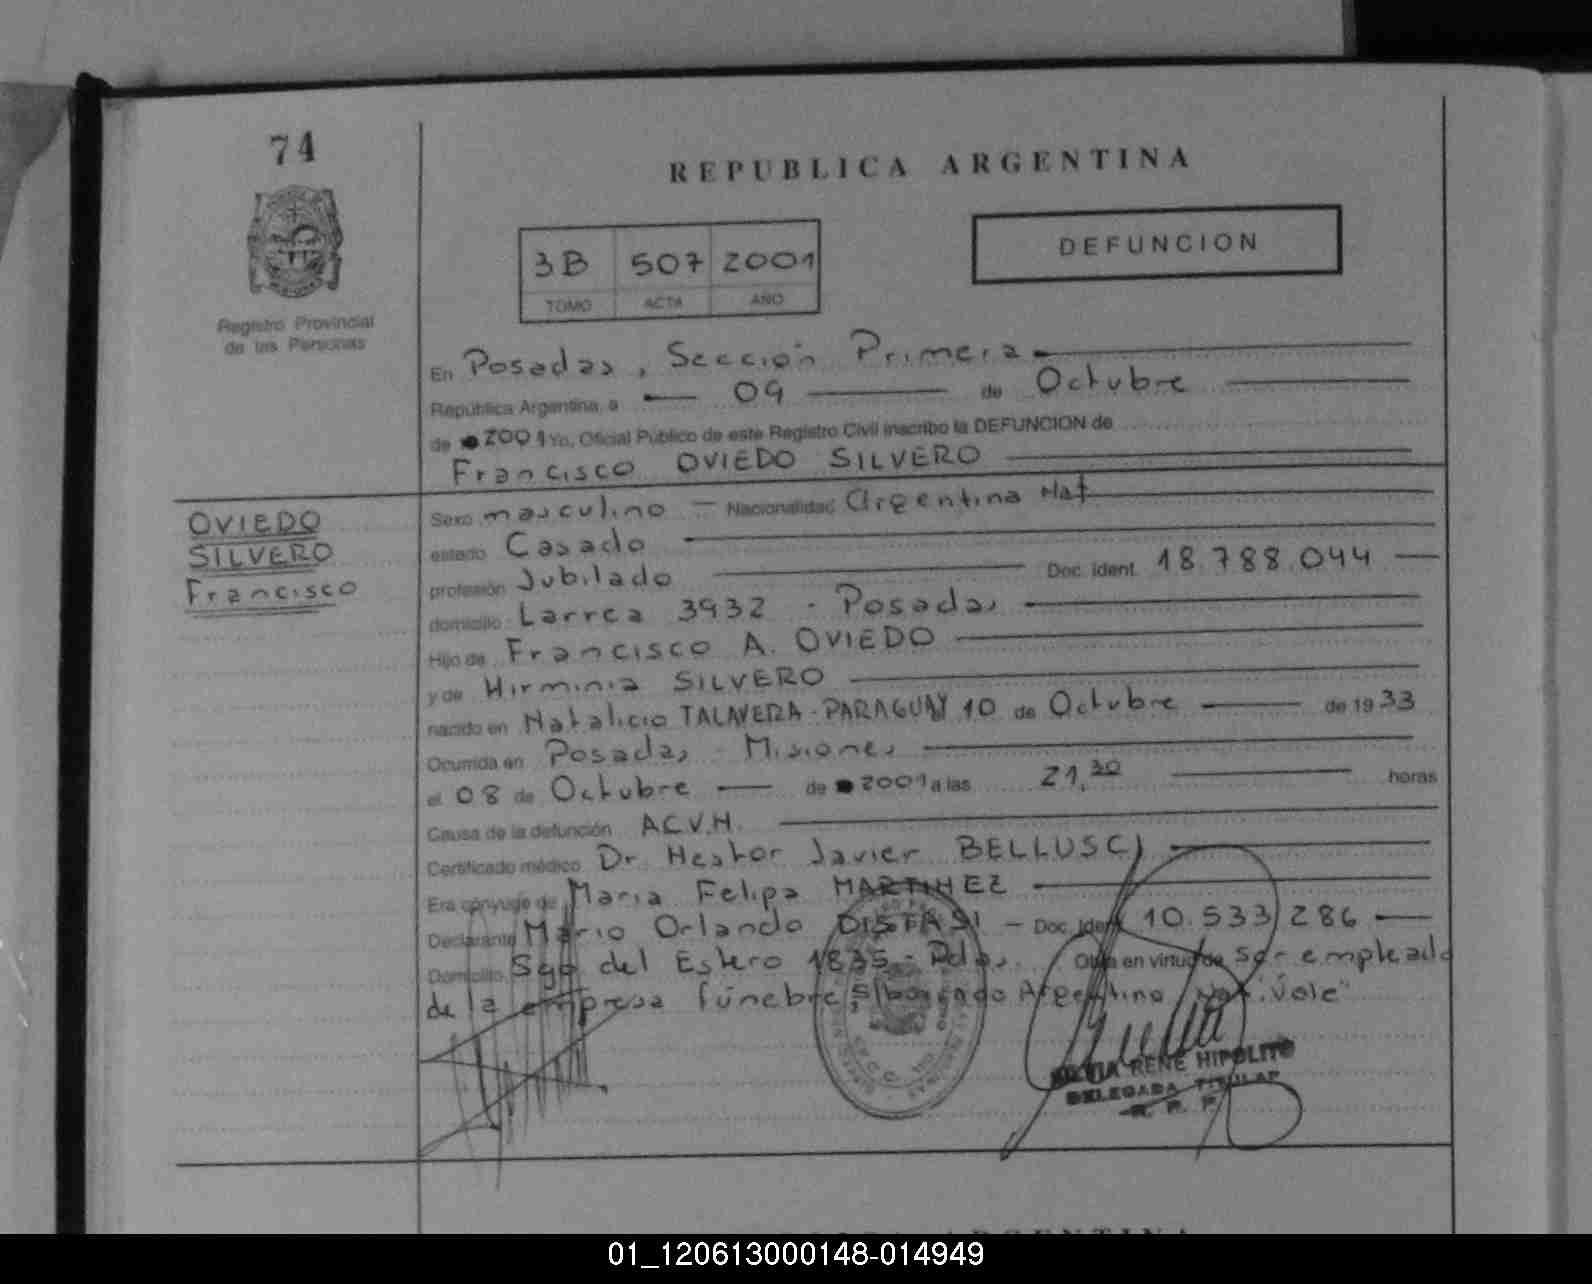 74
Registro Provincial
de las Personas
REPUBLICA ARGENTINA
3B 507 2001
TOMO ACTA AÑO
DEFUNCION
En Posadas, Sección Primera
República Argentina, a 09 de Octubre
de 2001 Yo, Oficial Público de este Registro Civil inscribo la DEFUNCION de
Francisco OVIEDO SILVERO
OVIEDO
SILVERO
Francisco
Sexo masculino - Nacionalidad Argentina Nat
estado Casado
profesión Jubilado Doc. Ident. 18.788.044
domicilio Larrea 3932 - Posadas
Hijo de Francisco A. OVIEDO
y de Hirminia SILVERO
nacido en Natalicio TALAVERA - PARAGUAY 10 de Octubre de 1933
Ocurrida en Posadas - Misiones
el 08 de Octubre de 2001 a las 21,30 horas
Causa de la defunción A.C.V.H.
Certificado médico Dr. Hestor Javier BELLUSCI
Era cónyuge de Maria Felipa MARTINEZ
Declarante Mario Orlando DISTASI - Doc. Ident 10.533 286
Domicilio Sgo del Estero 1835 - Pdas. Obra en virtud de ser empleado
de la empresa fúnebre Argentino "Vole"
SILVIA RENE HIPOLITO
DELEGADA TITULAR
R. P. P.
ARGENTINA
01_120613000148-014949